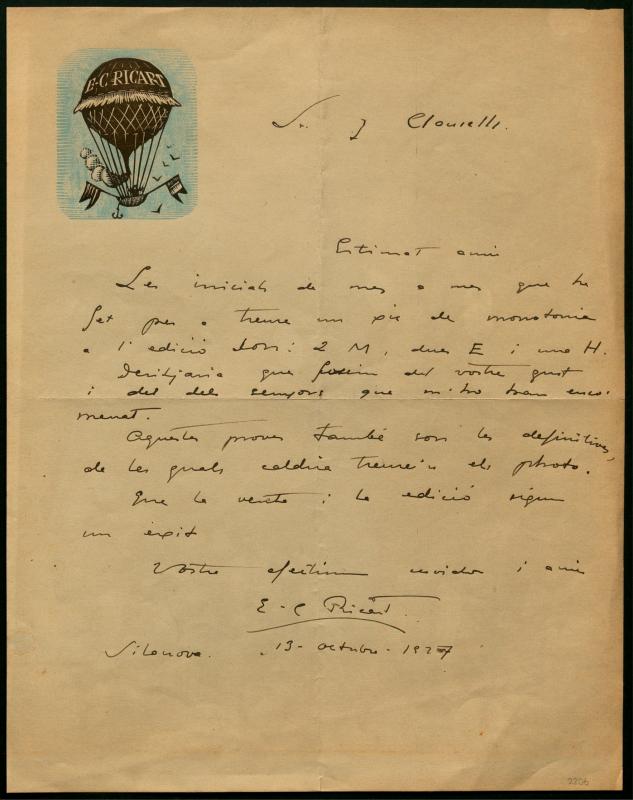 E-C RICART
Sr. J Clausells.
Estimat amic
Les inicials de mes a mes que he
fet per a treure un xic de monotonia
a l'edició son: 2 M, dues E i una H.
Desitjaria que fossin del vostre gust
i del dels senyors que m'ho han enco-
menat.
Aquestes proves també son les definitives,
de les quals caldria treure'n els photo.
Que la venta i la edició siguin
un exit
Vostre afectissim servidor i amic
E-C Ricart.
Vilanova. 13 - octubre - 1927
2206